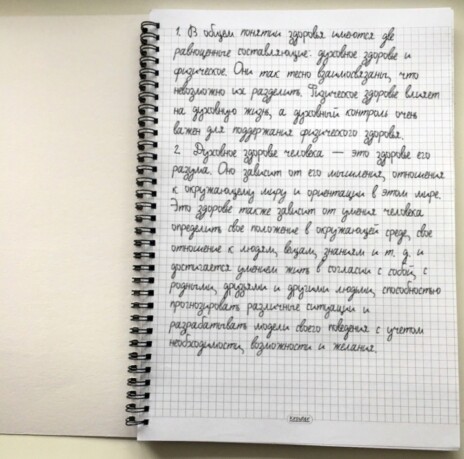 1. В общем понятии здоровья имеются две
равноценные составляющие: духовное здоровье и
физическое. Они так тесно взаимосвязаны, что
невозможно их разделить. Физическое здоровье влияет
на духовную жизнь, а духовный контроль очень
важен для поддержания физического здоровья.
2. Духовное здоровье человека — это здоровье его
разума. Оно зависит от его мышления, отношения
к окружающему миру и ориентации в этом мире.
Это здоровье также зависит от умения человека
определить свое положение в окружающей среде, свое
отношение к людям, вещам, знаниям и т. д. и
достигается умением жить в согласии с собой, с
родными, друзьями и другими людьми, способностью
прогнозировать различные ситуации и
разрабатывать модели своего поведения с учетом
необходимости, возможности и желания.